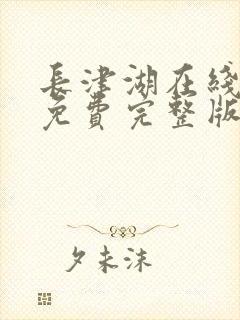 長津湖在綫
免費完整版
夕未沫